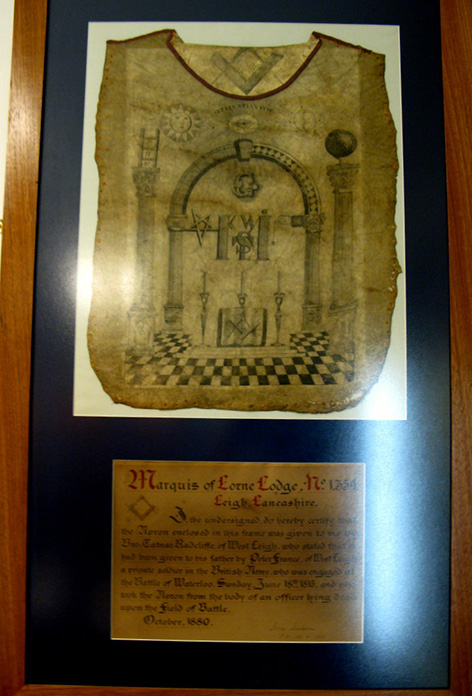 Marquis of Lorne Lodge, No 1354
Leigh, Lancashire.
I, the undersigned, do hereby certify that
the Apron enclosed in this frame was given to me by
Bro. Radcliffe, of West Leigh, who stated that it
had been given to his father by Peter France, of West Leigh
a private soldier in the British Army, who was engaged at
the Battle of Waterloo, Sunday, June 18th 1815, and
took the Apron from the body of an officer lying dead
upon the Field of Battle.
October, 1880.